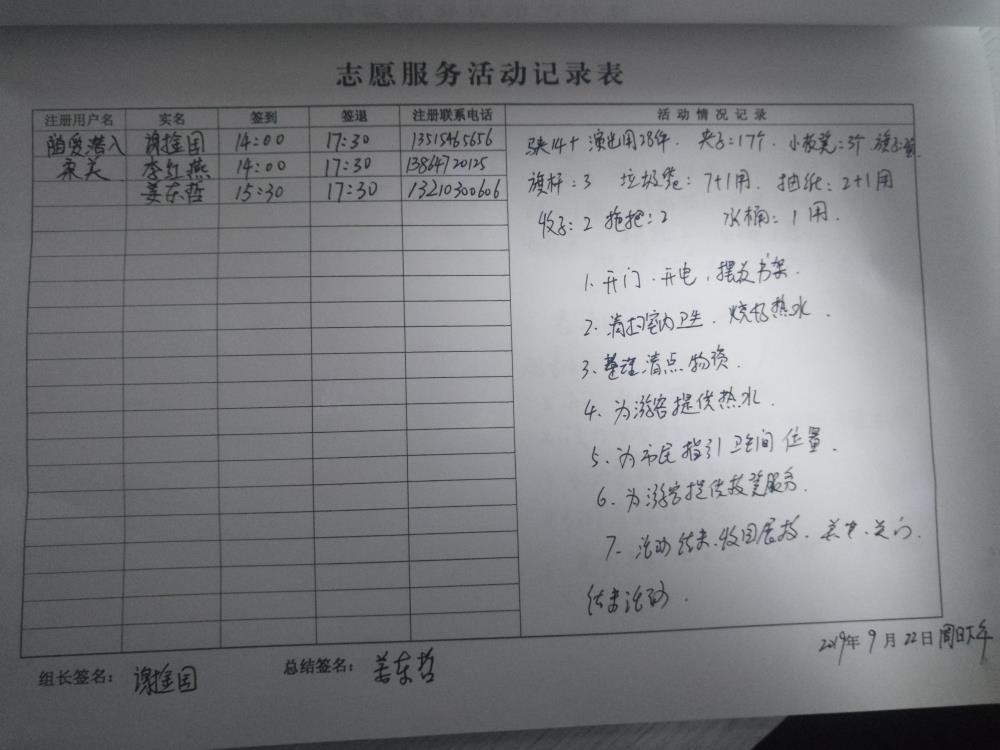 志愿服务活动记录表
注册用户名 实名 签到 签退 注册联系电话 活动情况记录
随爱潜入 谢金国 14:00 17:30 13515465656
柔美 李红燕 14:00 17:30 13864720125
姜东哲 15:30 17:30 13210300606
14个 演出用28件. 夹子:17个 小板凳:3个
旗杆:3 垃圾笼:7+1用. 抽纸:2+1用
2 拖把:2 水桶:1用.
1. 开门.开电,摆放书架.
2. 清扫室内卫生. 烧好热水.
3. 整理清点物资.
4. 为游客提供热水.
5. 为市民指引卫生间位置.
6. 为游客提供技凳服务.
7. 活动结束.收回展板.关电.关门.
结束活动.
2019年9月22日周日下午
组长签名: 谢金国 总结签名: 姜东哲